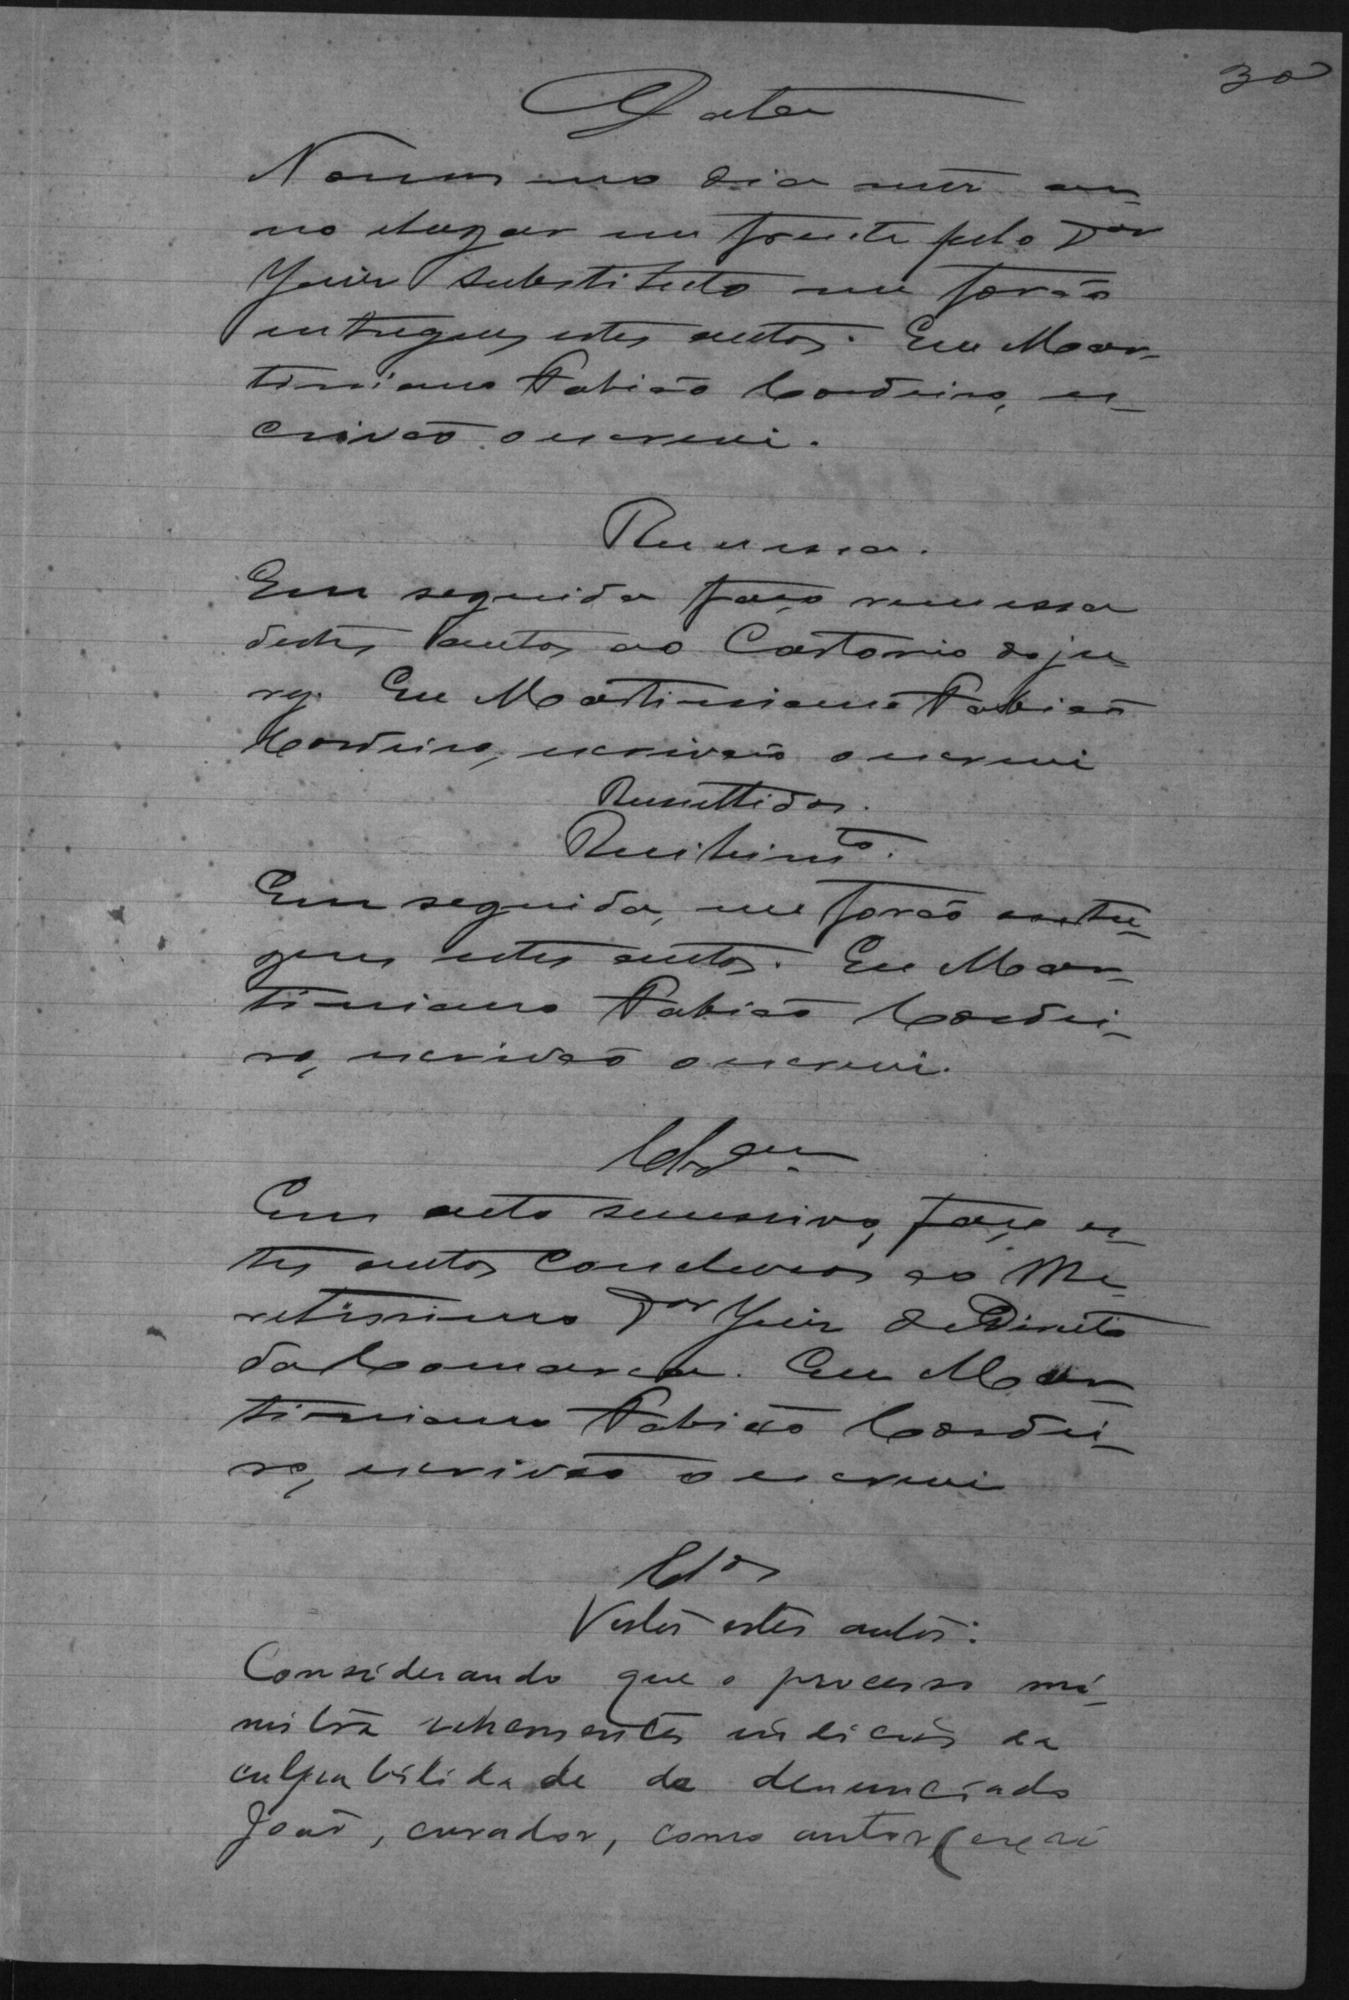 30
Data
No mesmo dia mez an-
no e lugar em frente pelo Dor
Juiz substituto me forão
entregues estes autos. Eu Mar-
timiano Fabião Cordeiro, es-
crivão o escrevi.
Remessa.
Em seguida faço remessa
destes autos ao Cartorio do ju-
ry. Eu Martimiano Fabião
Cordeiro, escrivão o escrevi
Remettidos.
Recebimto.
Em seguida, me forão entre-
gues estes autos. Eu Mar-
timiano Fabião Cordei-
ro, escrivão o escrevi.
Clsam.
Em acto sucessivo, faço es-
tes autos conclusos ao Me-
retissimo Dor Juiz de Direito
da Comarca. Eu Mar-
timiano Fabião Cordei-
ro, escrivão o escrevi
Clos
Vistos estes autos:
Considerando que o processo mi-
nistra vehementes indicios da
culpabilidade do denunciado
João, curador, como autor